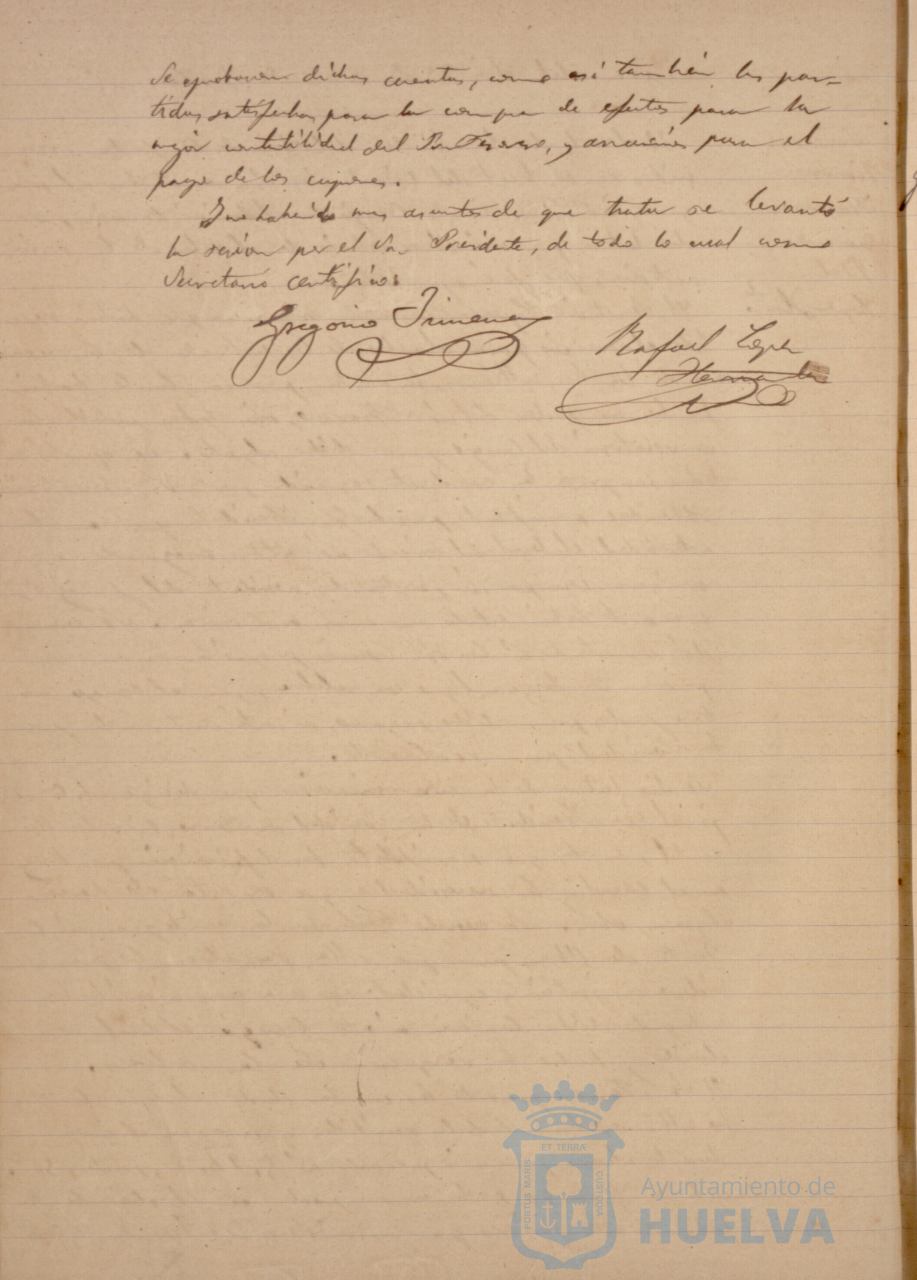 Se aprobaron dichas cuentas, como así también las par-
tidas satisfechas para la compra de efectos para la
mejor contabilidad del Sr. Tesorero, y armarios para el
pago de los cupones.
Y no habiendo mas asuntos de que tratar se levantó
la sesion por el Sr. Presidente, de todo lo cual como
Secretario certifico:
Gregorio Jimenez
Rafael Lopez
Hernandez
ET TERRÆ
PORTUS MARIS
CUSTODIA
Ayuntamiento de
HUELVA